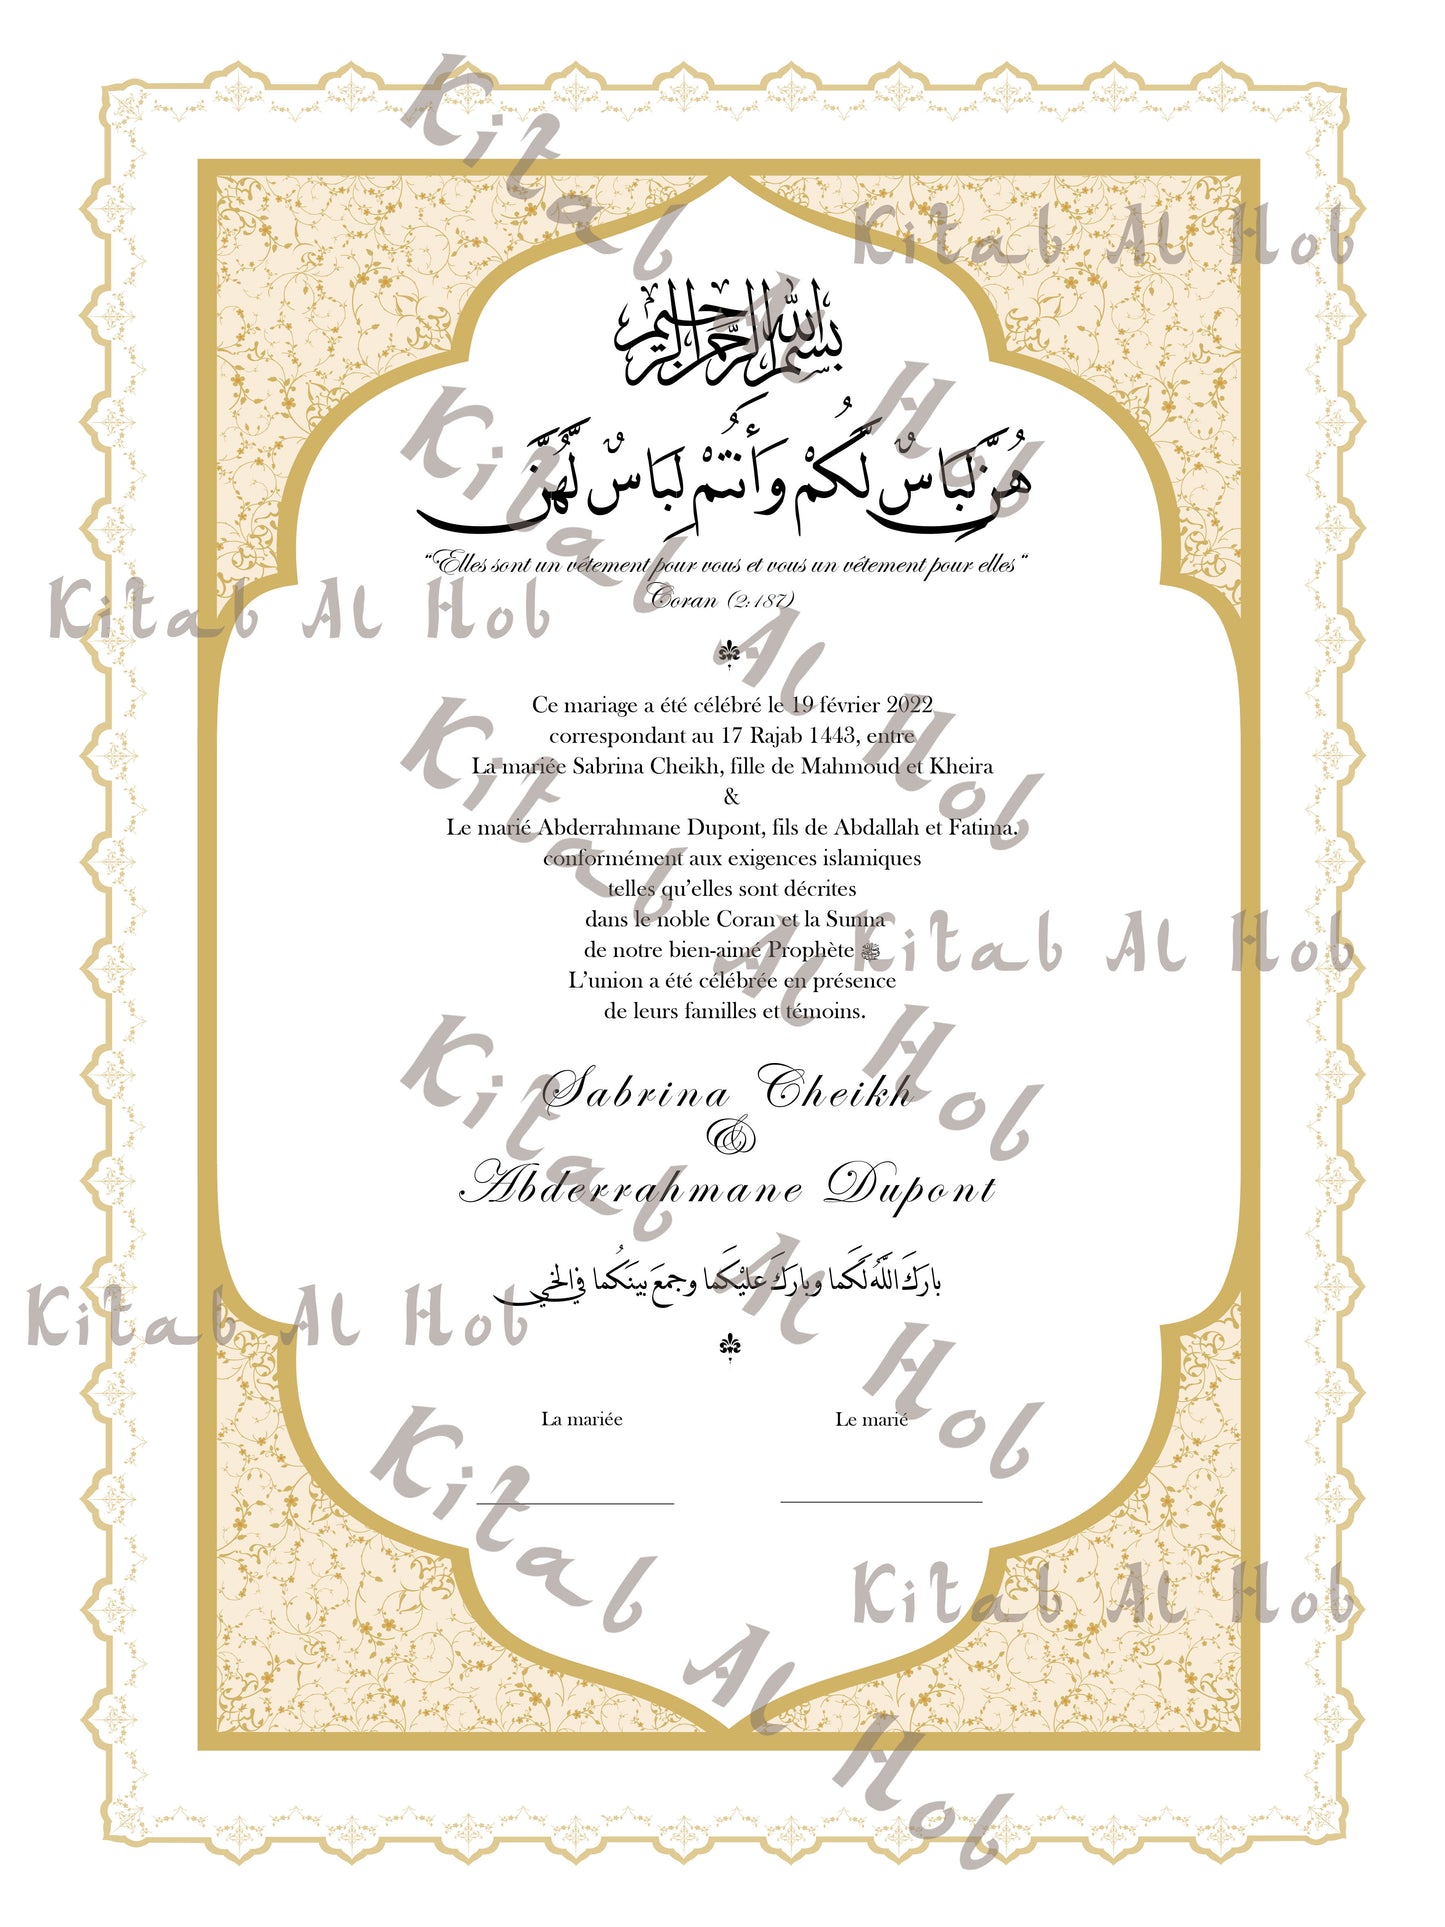 بسم الله الرحمن الرحيم
هُنَّ لِبَاسٌ لَّكُمْ وَأَنتُمْ لِبَاسٌ لَّهُنَّ
“Elles sont un vêtement pour vous et vous un vêtement pour elles“
Coran (2:187)
Ce mariage a été célébré le 19 février 2022
correspondant au 17 Rajab 1443, entre
La mariée Sabrina Cheikh, fille de Mahmoud et Kheira
&
Le marié Abderrahmane Dupont, fils de Abdallah et Fatima.
conformément aux exigences islamiques
telles qu’elles sont décrites
dans le noble Coran et la Sunna
de notre bien-aimé Prophète ﷺ
L’union a été célébrée en présence
de leurs familles et témoins.
Sabrina Cheikh
&
Abderrahmane Dupont
بارَكَ اللَّهُ لَكُما وبارَكَ عليْكَما وجمعَ بينَكُما في الخي
La mariée Le marié
Kitab Al Hob
Kitab Al Hob
Kitab Al Hob
Kitab Al Hob
Kitab Al Hob
Kitab Al Hob
Kitab Al Hob
Kitab Al Hob
Kitab Al Hob
Kitab Al Hob